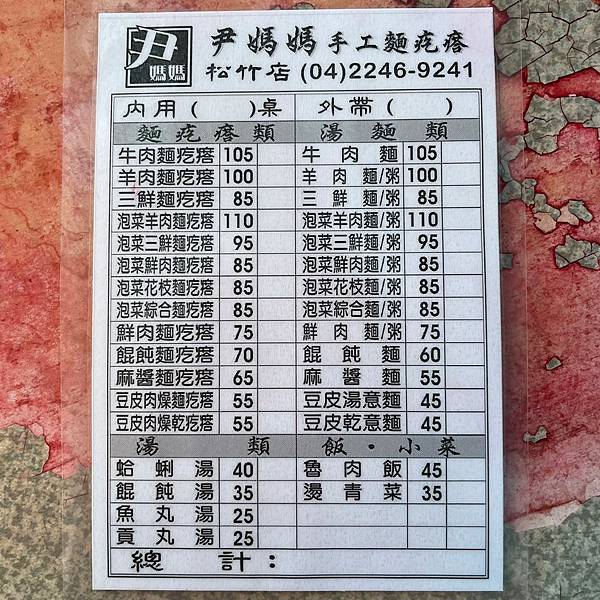 尹 媽媽
尹媽媽手工麵疙瘩
松竹店 (04)2246-9241
內用( )桌 外帶( )
麵疙瘩類 湯麵類
牛肉麵疙瘩 105 牛肉麵 105
羊肉麵疙瘩 100 羊肉麵/粥 100
三鮮麵疙瘩 85 三鮮麵/粥 85
泡菜羊肉麵疙瘩 110 泡菜羊肉麵/粥 110
泡菜三鮮麵疙瘩 95 泡菜三鮮麵/粥 95
泡菜鮮肉麵疙瘩 85 泡菜鮮肉麵/粥 85
泡菜花枝麵疙瘩 85 泡菜花枝麵/粥 85
泡菜綜合麵疙瘩 85 泡菜綜合麵/粥 85
鮮肉麵疙瘩 75 鮮肉麵/粥 75
餛飩麵疙瘩 70 餛飩麵 60
麻醬麵疙瘩 65 麻醬麵 55
豆皮肉燥麵疙瘩 55 豆皮湯意麵 45
豆皮肉燥乾疙瘩 55 豆皮乾意麵 45
湯類 飯・小菜
蛤蜊湯 40 魯肉飯 45
餛飩湯 35 燙青菜 35
魚丸湯 25
貢丸湯 25
總計: